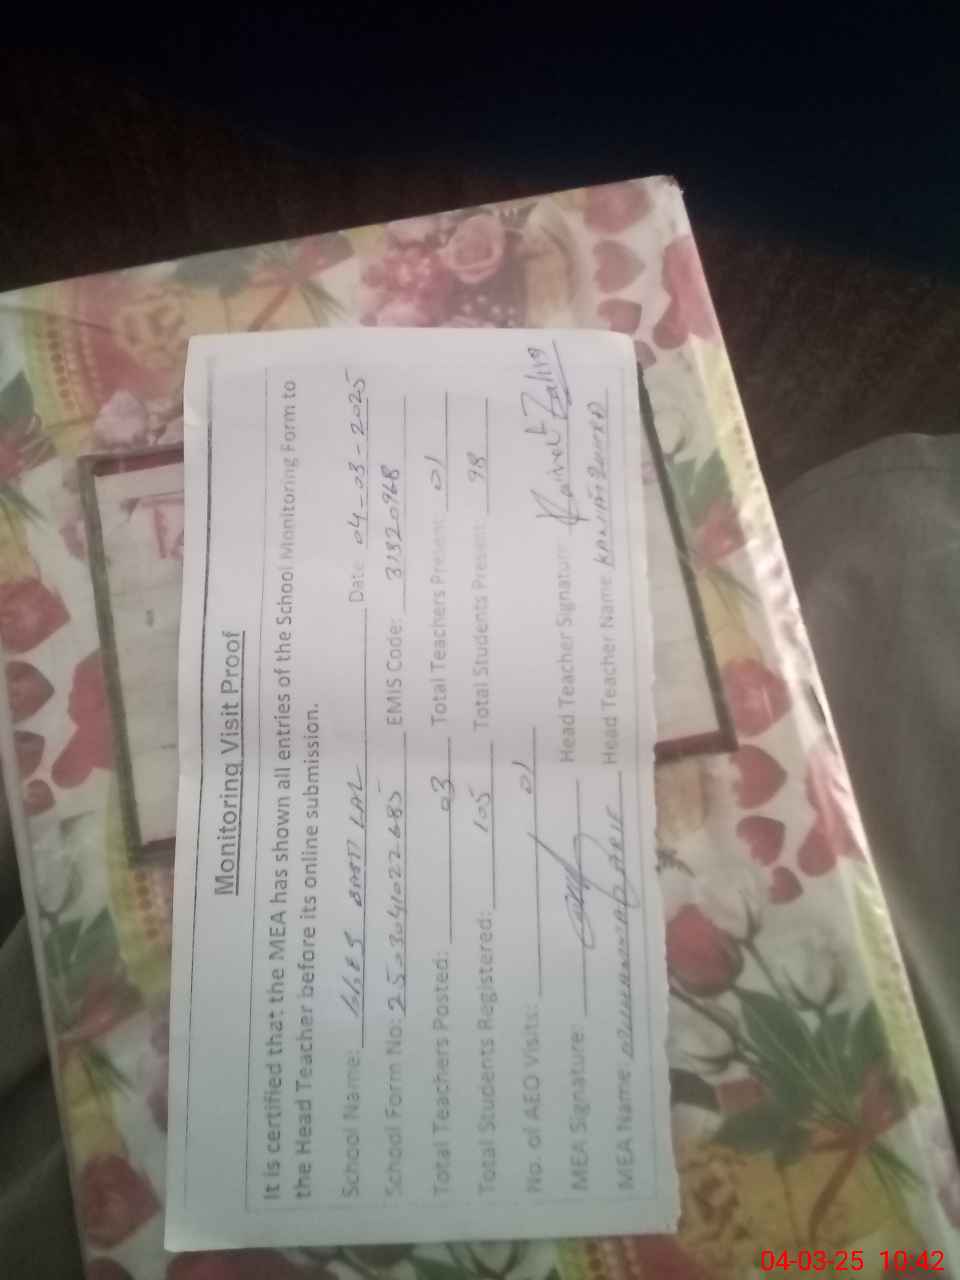 Monitoring Visit Proof
It is certified that the MEA has shown all entries of the School Monitoring Form to
the Head Teacher before its online submission.
School Name: BASTI LAL Date 04-03-2025
School Form No: 2503041022685 EMIS Code: 31320968
Total Teachers Posted: 03 Total Teachers Present: 01
Total Students Registered: 105 Total Students Present: 98
No. of AEO Visits: 01
MEA Signature: Head Teacher Signature:
MEA Name Head Teacher Name
04-03-25 10:42